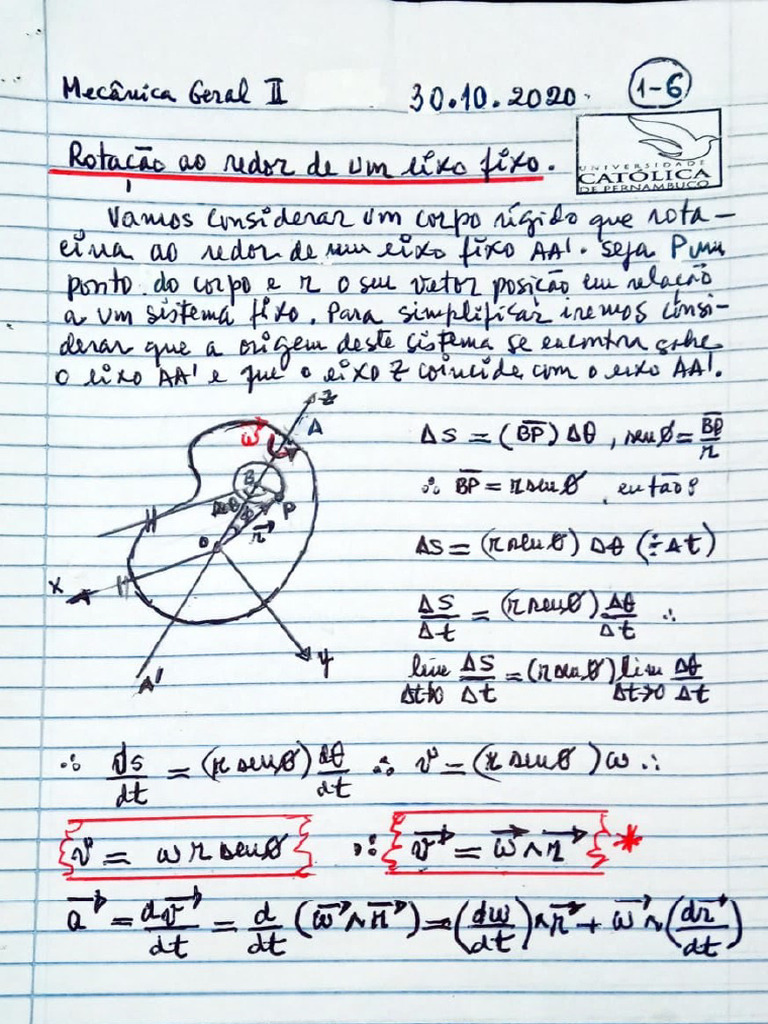 Mecânica Geral II 30.10.2020. 1-6
UNIVERSIDADE
CATÓLICA
DE PERNAMBUCO
Rotação ao redor de um eixo fixo.
Vamos considerar um corpo rígido que rota-
ciona ao redor de um eixo fixo AA'. Seja P um
ponto do corpo e r o seu vetor posição em relação
a um sistema fixo. Para simplificar iremos consi-
derar que a origem deste sistema se encontra sobre
o eixo AA' e que o eixo Z coincide com o eixo AA'.
Z
ω A
B
Δθ φ P
O r⃗
X
y
A'
ΔS = (B̅P̅) Δθ , senφ = B̅P̅/r
∴ B̅P̅ = r senφ , então:
ΔS = (r senφ) Δθ (÷Δt)
ΔS/Δt = (r senφ) Δθ/Δt ∴
lim Δt→0 ΔS/Δt = (r senφ) lim Δt→0 Δθ/Δt
∴ ds/dt = (r senφ) dθ/dt ∴ v = (r senφ) ω ∴
{v = ω r senφ} ∴ {v⃗ = ω⃗ ∧ r⃗} *
a⃗ = dv⃗/dt = d/dt (ω⃗ ∧ r⃗) = (dω/dt) ∧ r⃗ + ω⃗ ∧ (dr⃗/dt)